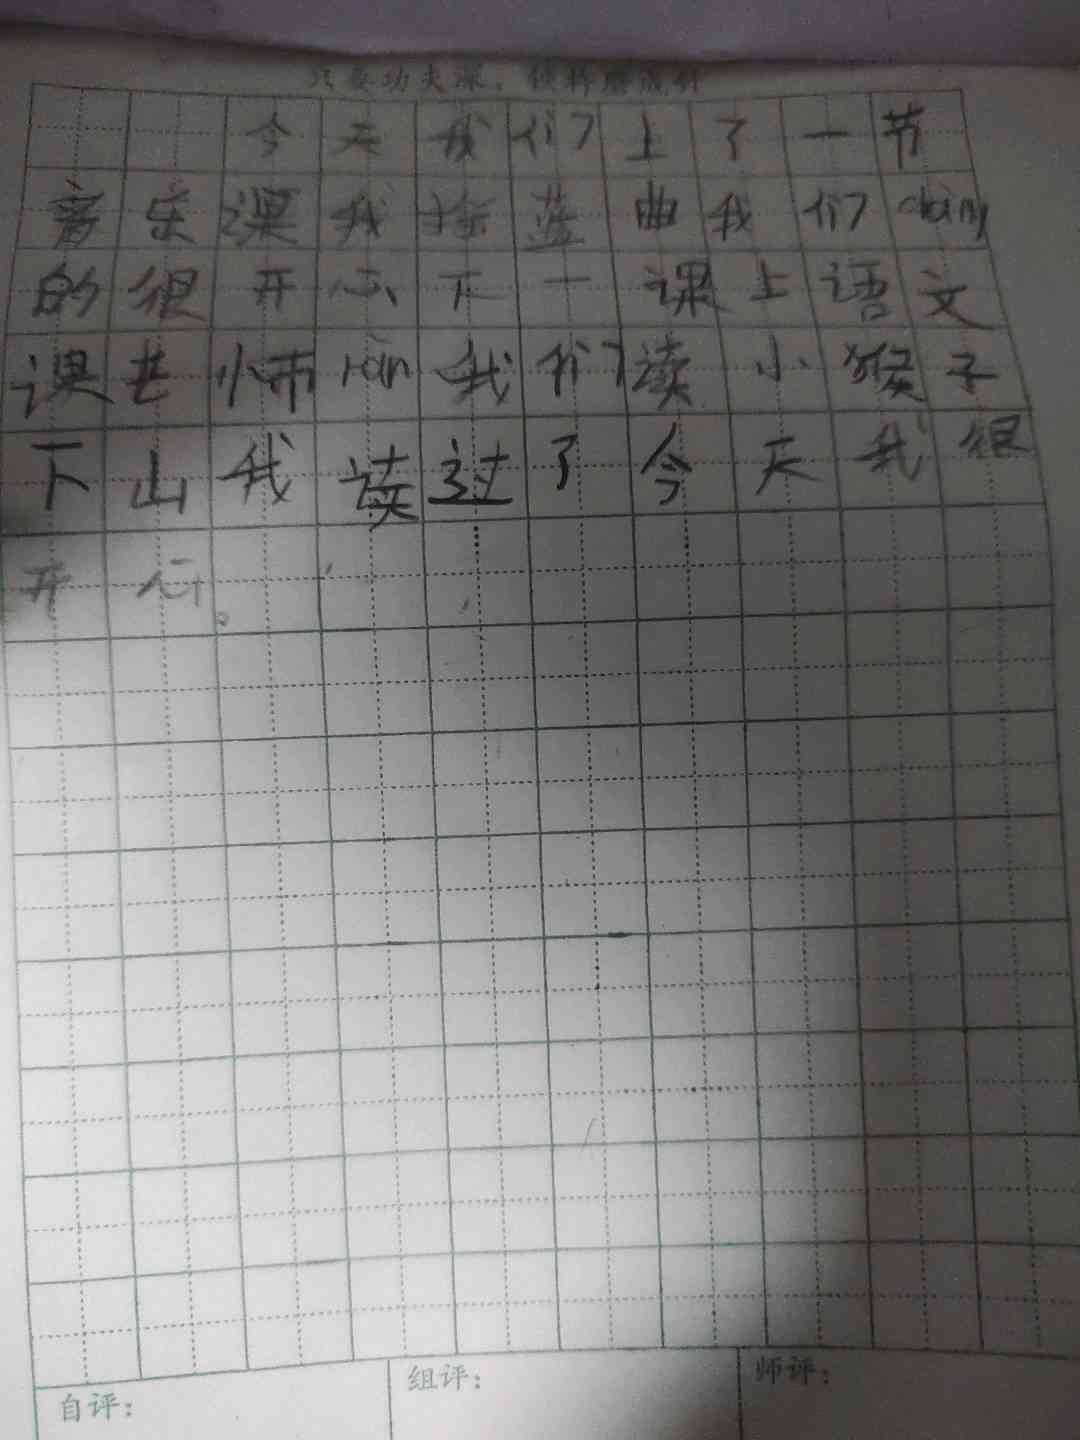 只要功夫深，铁杵磨成针
今天我们上了一节
音乐课我摇蓝曲我们chàng
的很开心下一课上语文
课老师ràn我们读小猴子
下山我读过了今天我很
开心。
自评： 组评： 师评：